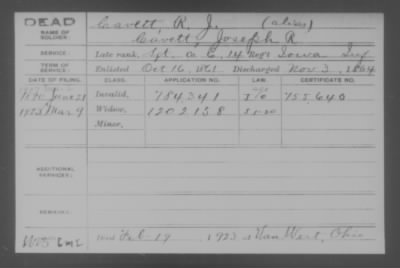 DEAD
NAME OF SOLDIER:
Cavett, R. J. (alias)
Cavett, Joseph R
SERVICE:
Late rank, Sgt. Co. E, 14 Reg't Iowa Inf
TERM OF SERVICE:
Enlisted Oct 16, 1861 Discharged Nov 3, 1864
DATE OF FILING. CLASS. APPLICATION NO. CERTIFICATE NO.
1890 June 21 Invalid, 784341 755640
1923 Mar 9 Widow, 1202158
Minor,
ADDITIONAL SERVICES:
REMARKS:
Died Feb-19, 1923 at Van Wert, Ohio